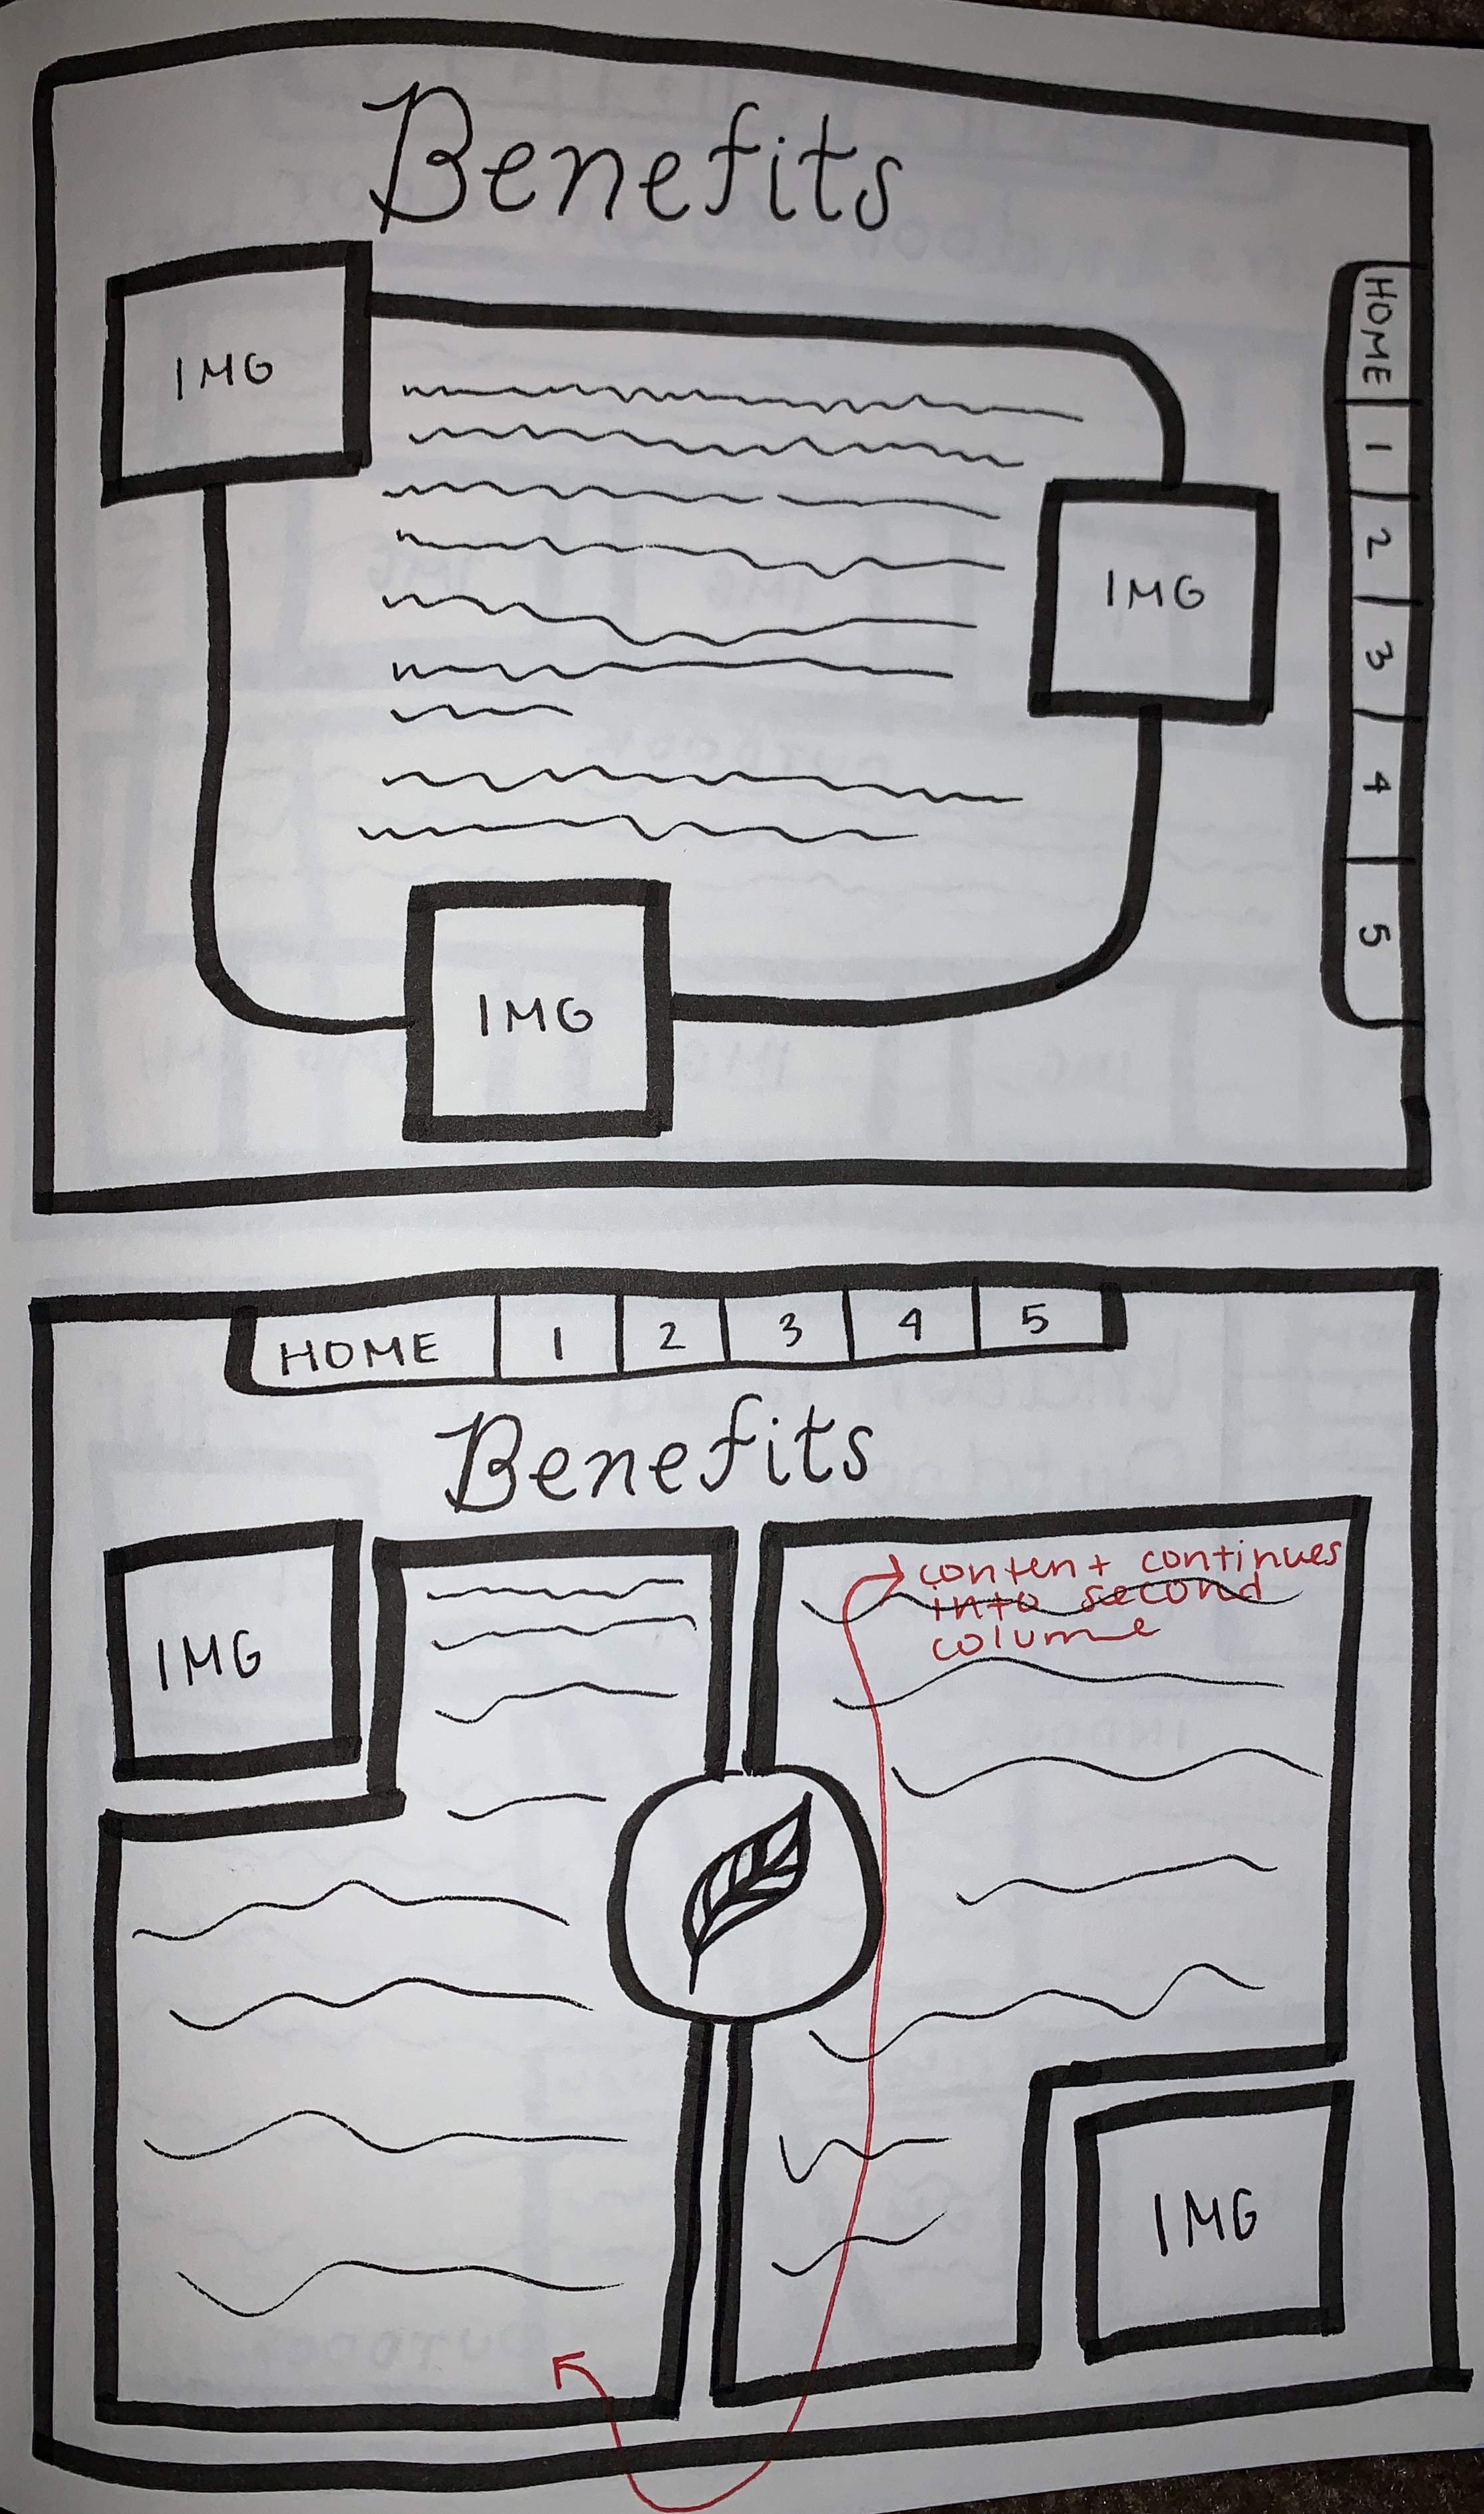 Benefits
IMG
HOME
1
2
3
4
5
IMG
IMG
HOME 1 2 3 4 5
Benefits
IMG
content continues
into second
columne
IMG